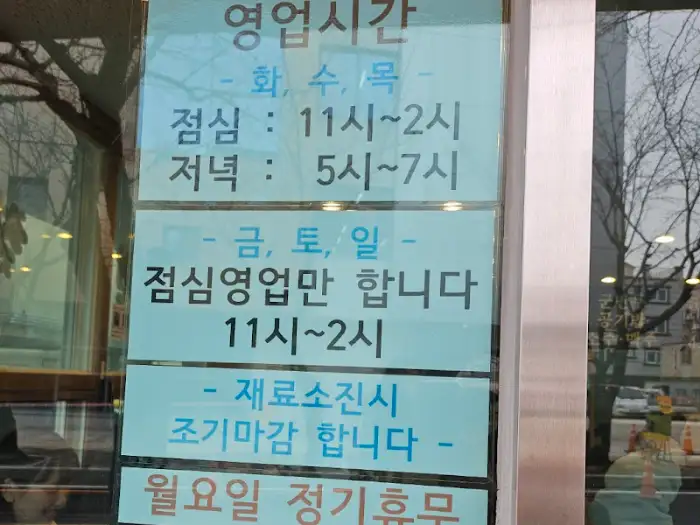 영업시간
- 화, 수, 목 -
점심 : 11시~2시
저녁 : 5시~7시
- 금, 토, 일 -
점심영업만 합니다
11시~2시
- 재료소진시
조기마감 합니다 -
월요일 정기휴무